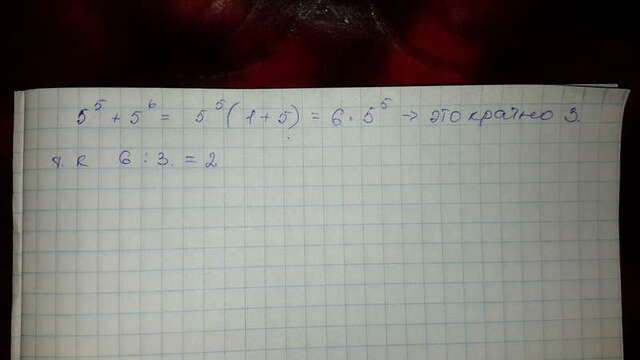 5⁵ + 5⁶ = 5⁵ (1 + 5) = 6 · 5⁵ → это кратно 3.
т. к 6 : 3. = 2